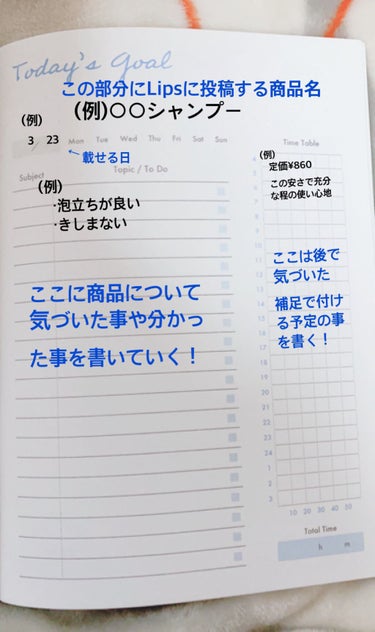 Today's Goal
この部分にLipsに投稿する商品名
(例)〇〇シャンプー
(例)
3 / 23 Mon Tue Wed Thu Fri Sat Sun
←載せる日
Subject
Topic / To Do
(例)
・泡立ちが良い
・きしまない
ここに商品について
気づいた事や分かっ
た事を書いていく！
Time Table
(例)
定価¥860
この安さで充分
な程の使い心地
ここは後で
気づいた
補足で付け
る予定の事
を書く！
10
11
12
13
14
15
16
17
18
19
20
21
22
23
24
1
2
3
10 20 30 40 50
Total Time
h m